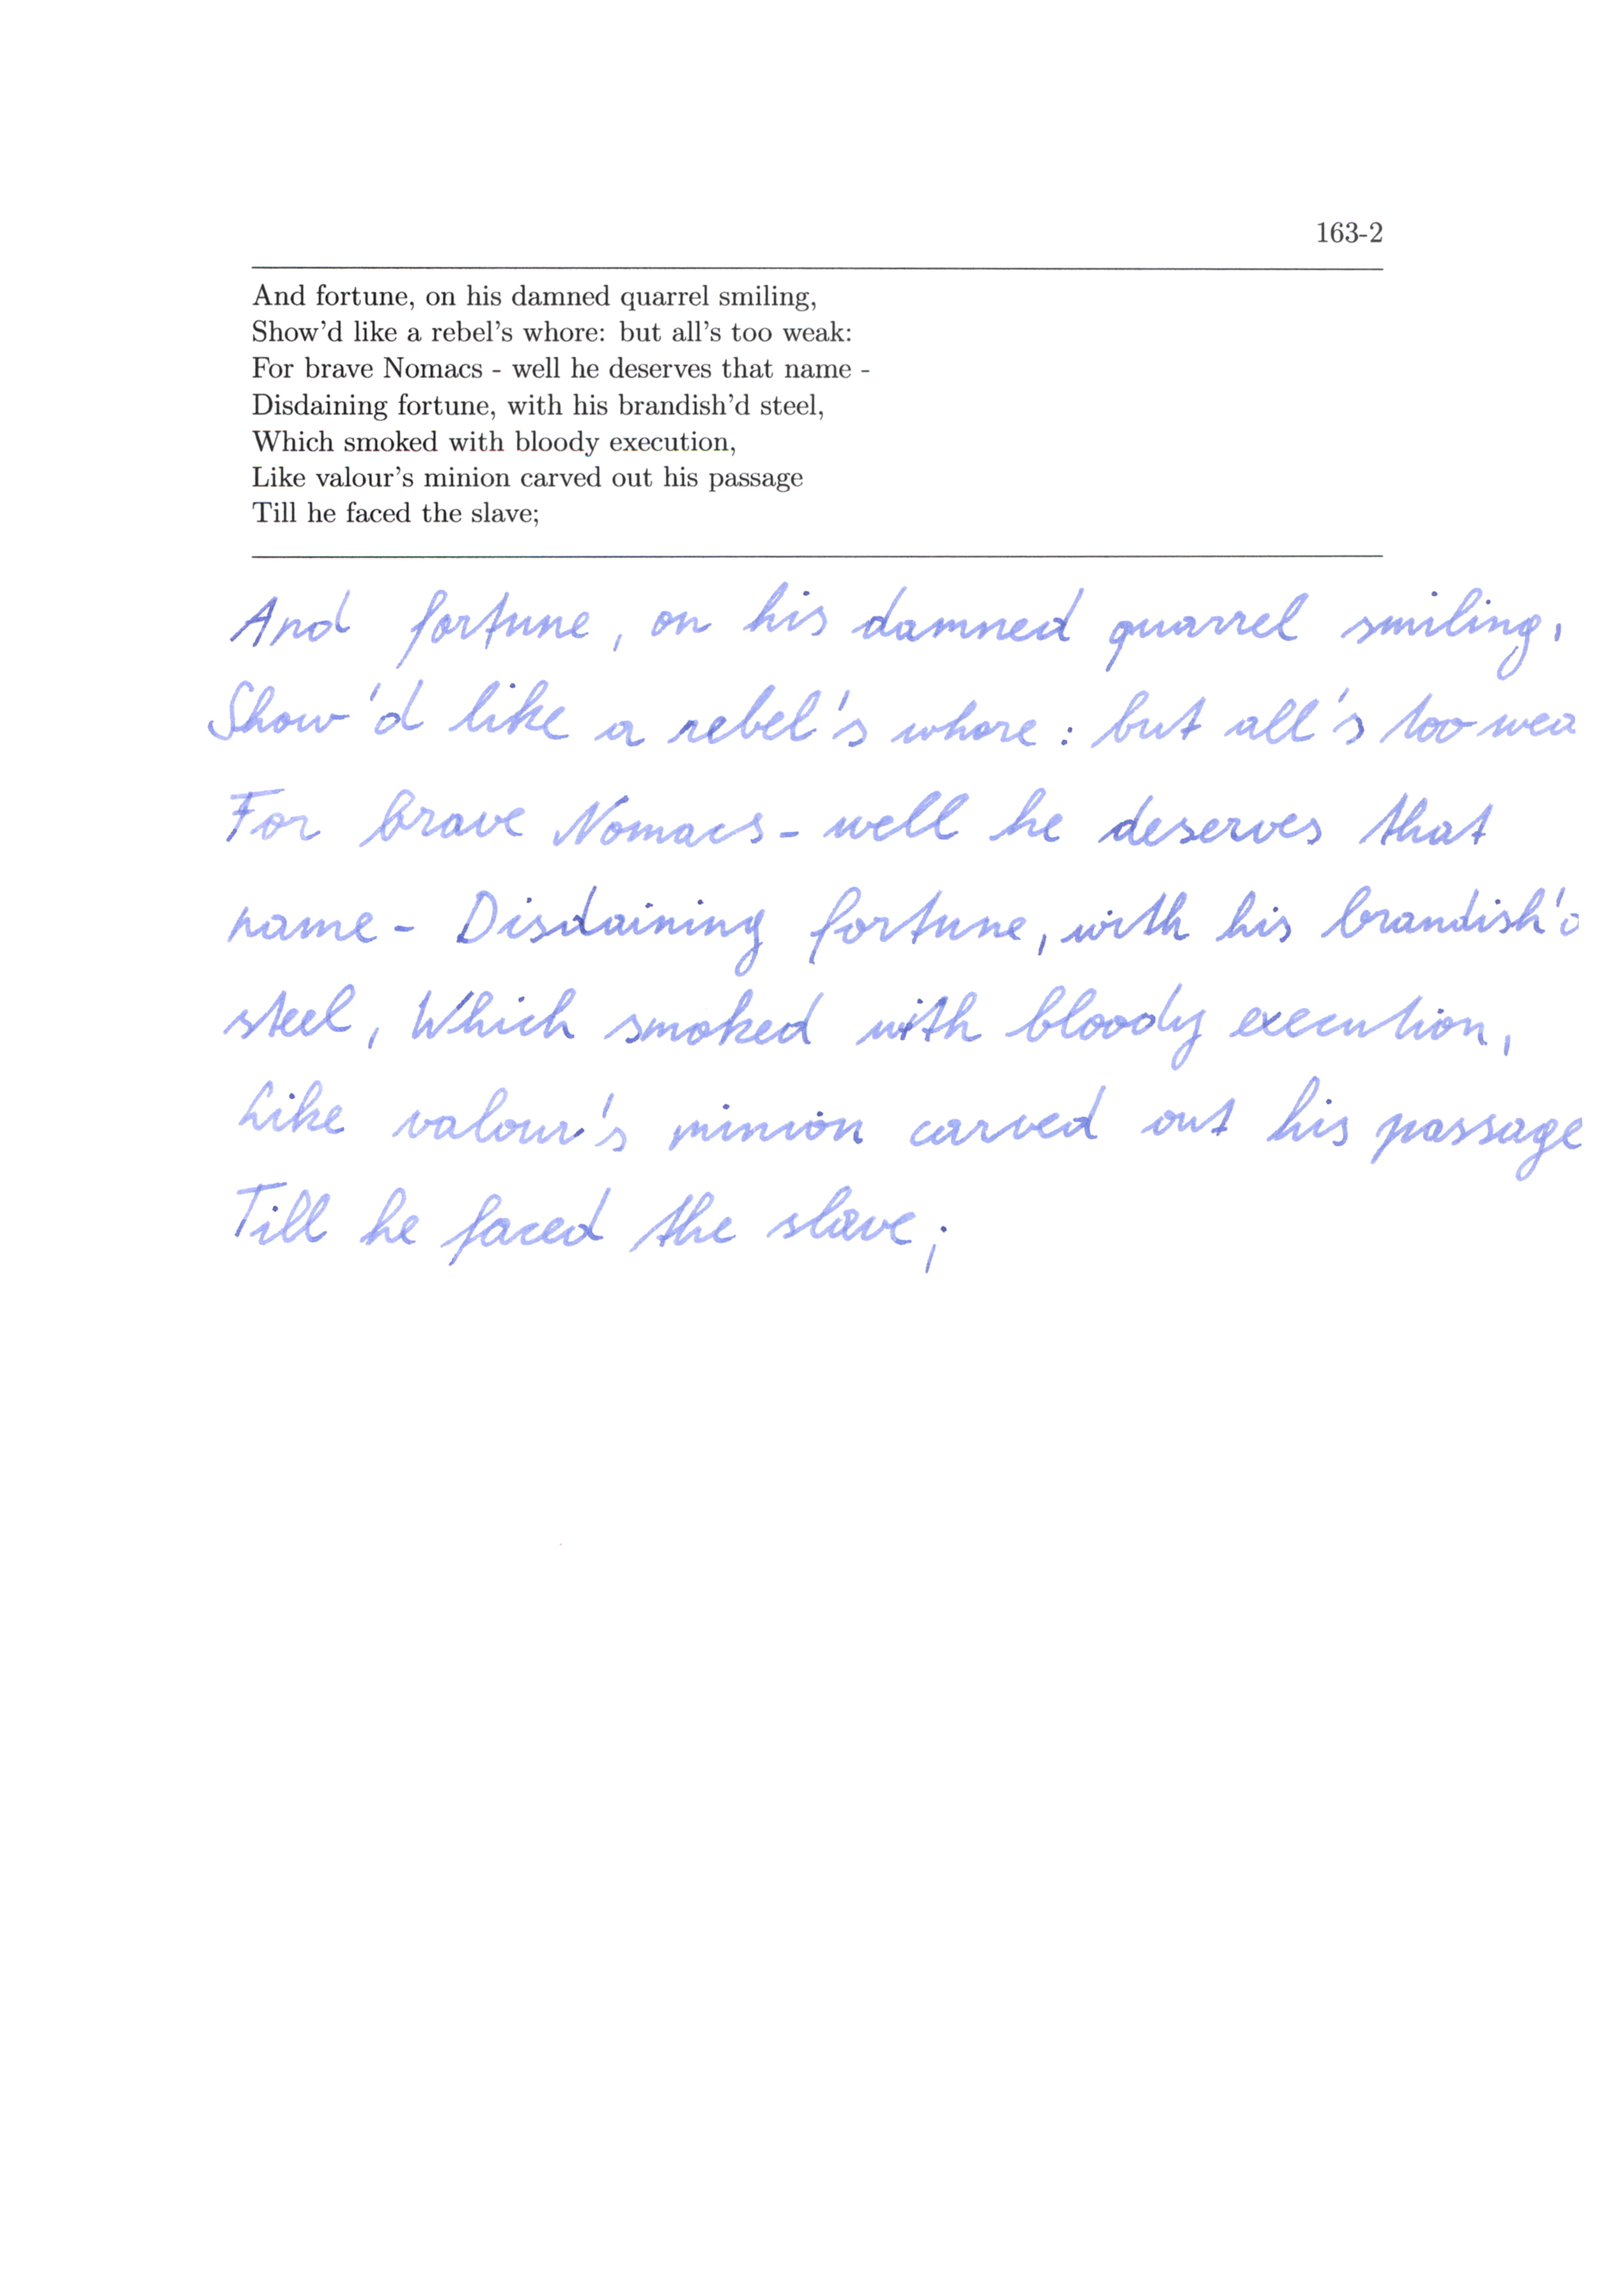 163-2
And fortune, on his damned quarrel smiling,
Show'd like a rebel's whore: but all's too weak:
For brave Nomacs - well he deserves that name -
Disdaining fortune, with his brandish'd steel,
Which smoked with bloody execution,
Like valour's minion carved out his passage
Till he faced the slave;
And fortune, on his damned quarrel smiling,
Show'd like a rebel's whore: but all's too wea
For brave Nomacs - well he deserves that
name - Disdaining fortune, with his brandish'd
steel, Which smoked with bloody execution,
Like valour's minion carved out his passage
Till he faced the slave;